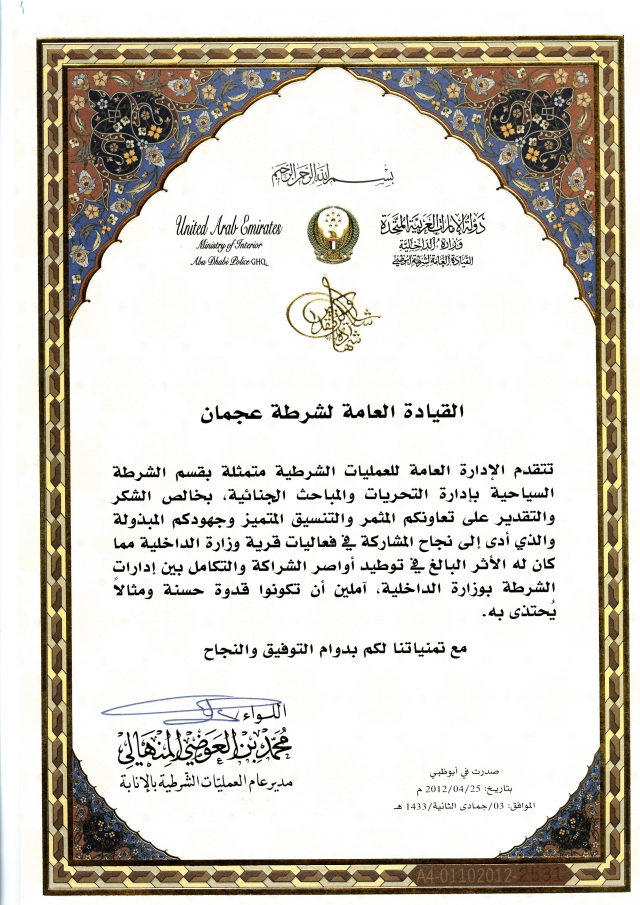 بسم الله الرحمن الرحيم
United Arab Emirates
Ministry of Interior
Abu Dhabi Police GHQ
دولة الإمارات العربية المتحدة
وزارة الداخلية
القيادة العامة لشرطة أبوظبي
شهادة شكر وتقدير
القيادة العامة لشرطة عجمان
تتقدم الإدارة العامة للعمليات الشرطية متمثلة بقسم الشرطة
السياحية بإدارة التحريات والمباحث الجنائية، بخالص الشكر
والتقدير على تعاونكم المثمر والتنسيق المتميز وجهودكم المبذولة
والذي أدى إلى نجاح المشاركة في فعاليات قرية وزارة الداخلية مما
كان له الأثر البالغ في توطيد أواصر الشراكة والتكامل بين إدارات
الشرطة بوزارة الداخلية، آملين أن تكونوا قدوة حسنة ومثالاً
يُحتذى به.
مع تمنياتنا لكم بدوام التوفيق والنجاح
اللواء
محمد بن العوضي المنهالي
مدير عام العمليات الشرطية بالإنابة
صدرت في أبوظبي
بتاريخ: 2012/04/25 م
الموافق: 03/جمادى الثانية/1433 هـ
A4-01102012-2531